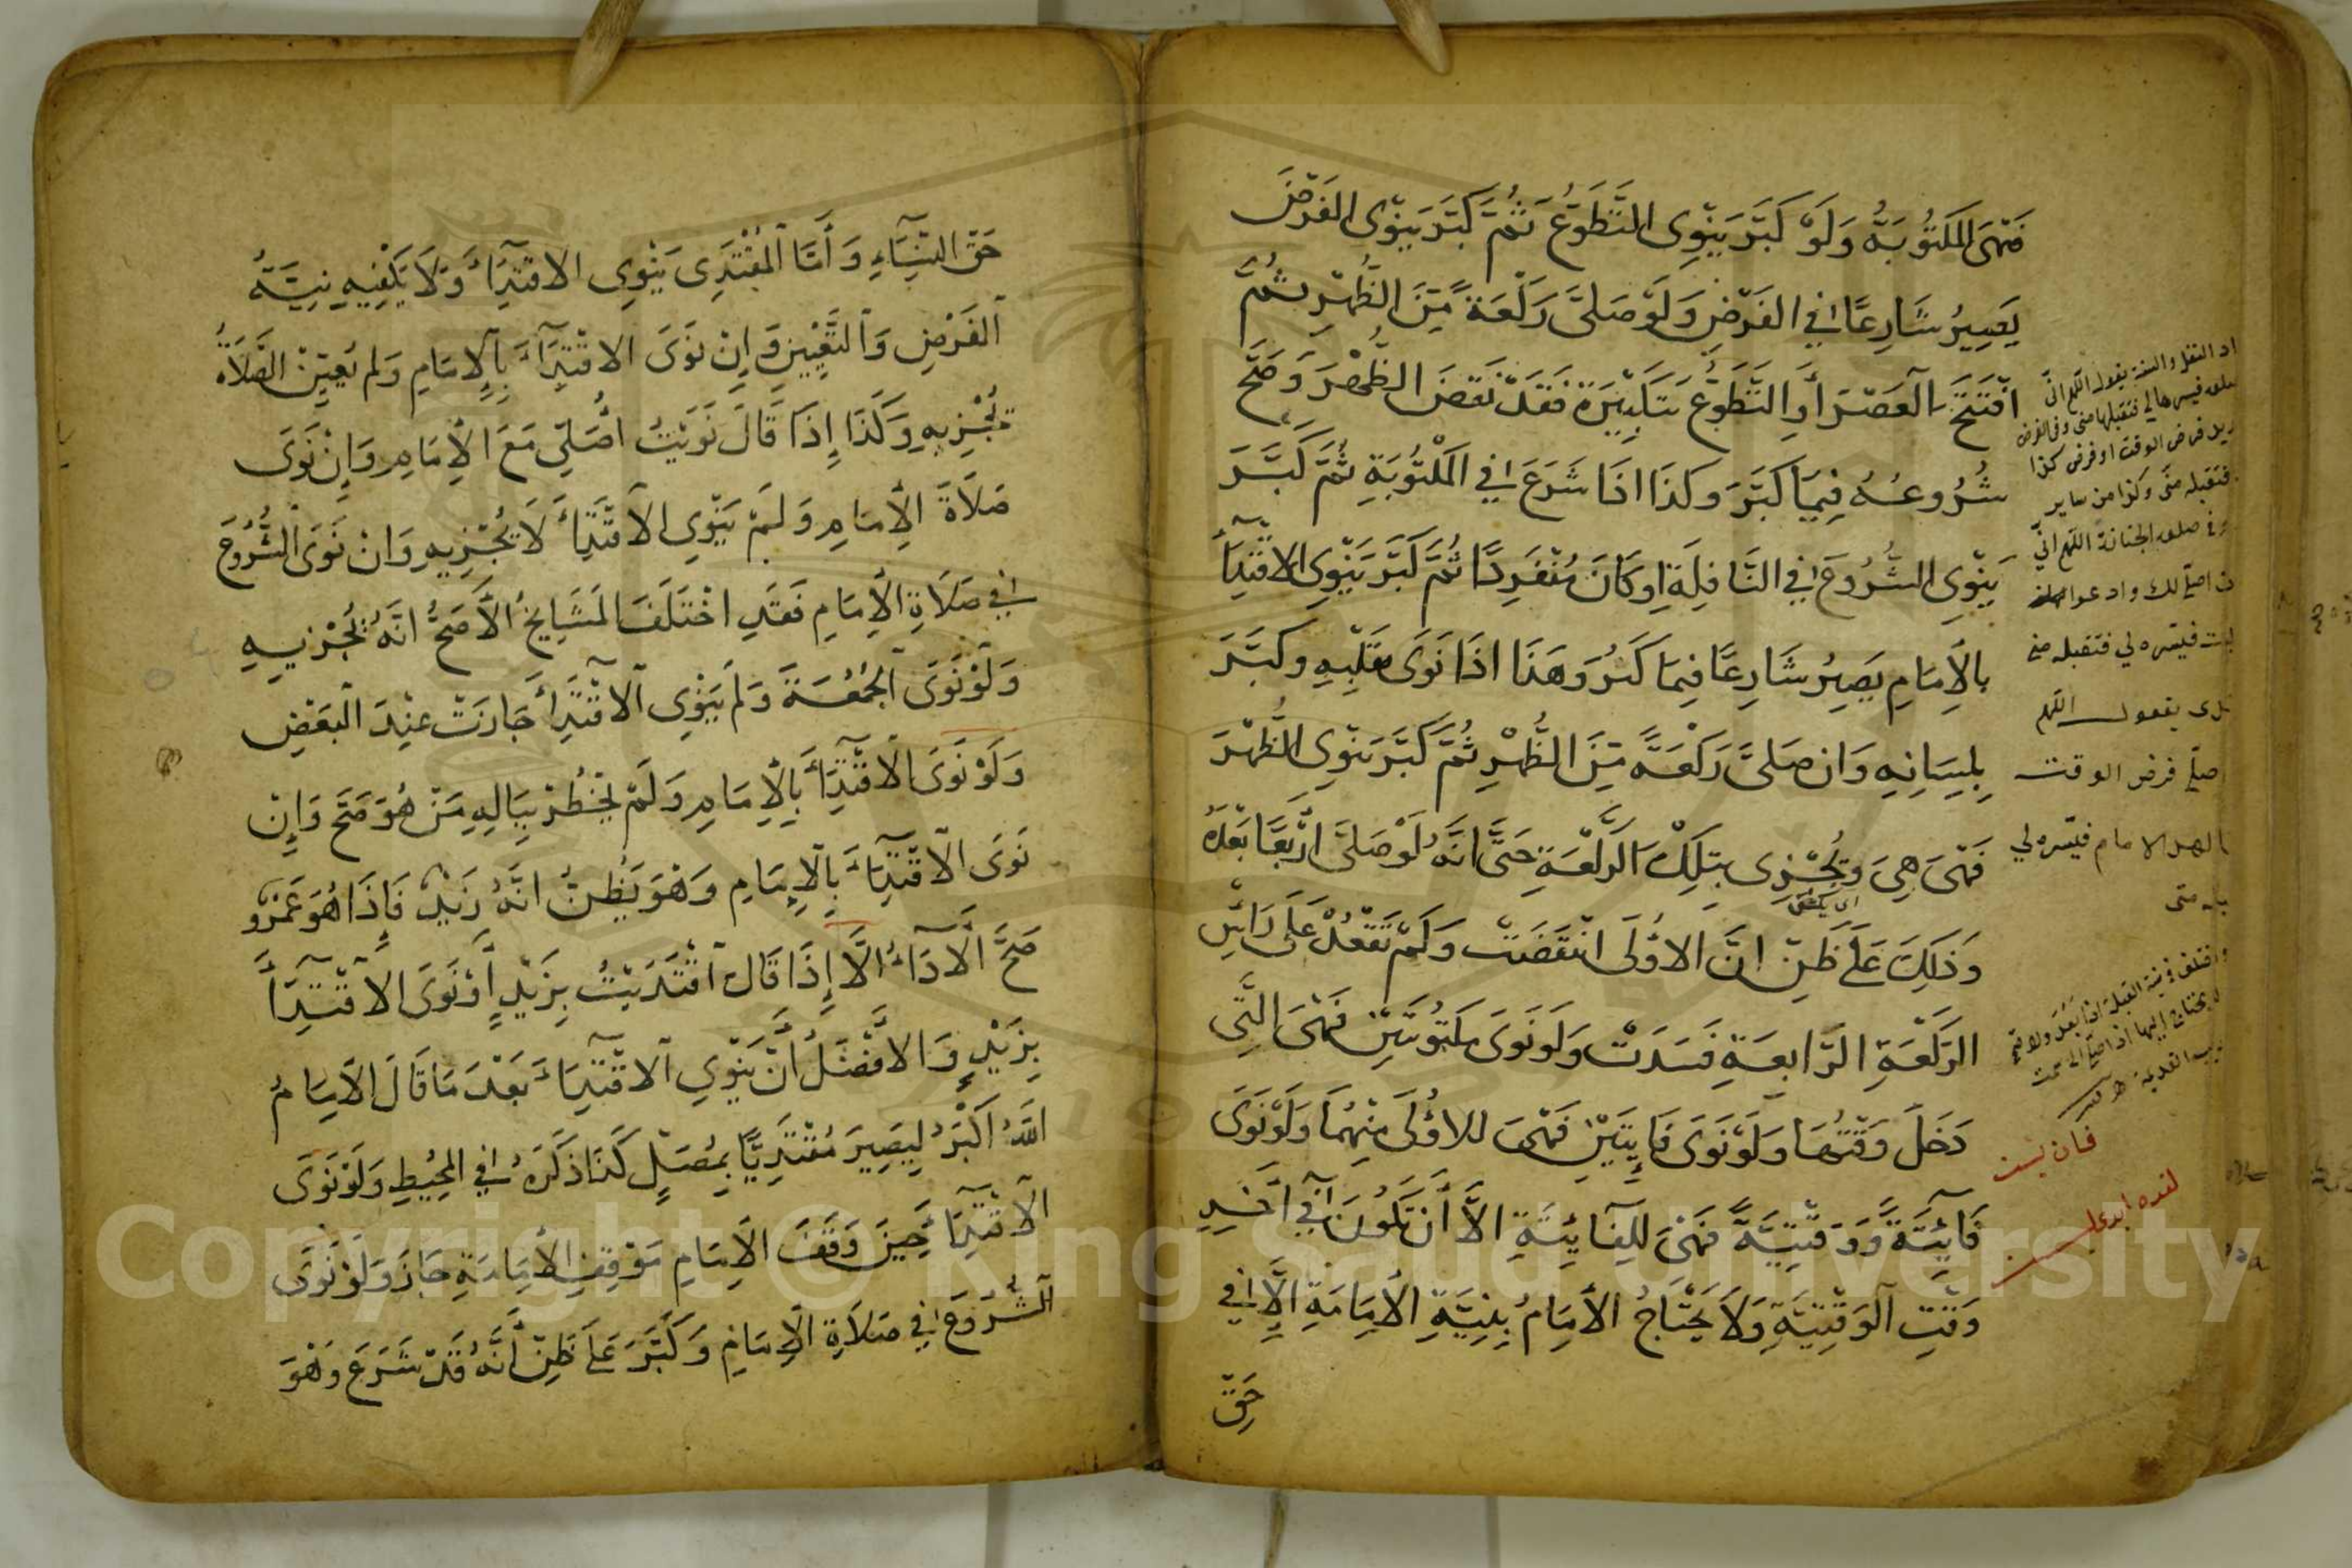 فَهْىَ المَكتُوبَةُ وَلَوْ كَبَّرَ يَنْوِى التَّطَوُّعَ ثُمَّ كَبَّرَ يَنْوِى الفَرْضَ
يَصِيرُ شَارِعًا فِي الفَرْضِ وَلَوْ صَلَّى رَكْعَةً مِّنَ الظُّهْرِ ثُمَّ
افْتَتَحَ العَصْرَ أَوِ التَّطَوُّعَ بِتَكْبِيرَةٍ فَقَدْ نَقَضَ الظُّهْرَ وَصَحَّ
شُرُوعُهُ فِيمَا كَبَّرَ وَكَذَا اذَا شَرَعَ فِي المَكْتُوبَةِ ثُمَّ كَبَّرَ
يَنْوِى الشُّرُوعَ فِي النَّافِلَةِ اوكَانَ مُنْفَرِدًا ثُمَّ كَبَّرَ يَنْوِى الاقْتِدَآءَ
بِالاِمَامِ يَصِيرُ شَارِعًا فِيمَا كَبَّرَ وَهَذَا اذَا نَوَى بِقَلْبِهِ وَكَبَّرَ
بِلِسَانِهِ وَان صَلَّى رَكْعَةً مِّنَ الظُّهْرِ ثُمَّ كَبَّرَ يَنْوِى الظُّهْرَ
فَهْىَ هِىَ وَتُجْزِى بِتِلْكَ الرَّكْعَةِ حَتَّى انَّهُ لَوْ صَلَّى ارْبَعًا بَعْدَهُ
وَذَلِكَ عَلَى ظَنِّ انَّ الاوُلَى انْتَقَضَتْ وَلَمْ تَقْعُدْ عَلَى رَاسِ
الرَّكْعَةِ الرَّابِعَةِ فَسَدَتْ وَلَو نَوَى مَكْتُوبَتَيْنِ فَهْىَ الَّتِي
دَخَلَ وَقْتُهَا وَلَوْ نَوَى فَايِتَتَيْنِ فَهْىَ للاوُلَى مِنْهُمَا وَلَوْ نَوَى
فَآئِتَةً وَوَقْتِيَّةً فَهْىَ لِلفَآئِتَةِ الاَّ أَنْ تَكُونَ فِي آخِرِ
وَقْتِ الوَقْتِيَّةِ وَلاَ يَحْتَاجُ الاِمَامُ بِنِيَّةِ الاِمَامَةِ الاَّ فِي
حَقِّ
اد النفل والسنة يقول اللهم انى
فرض الوقت او فرض كذا
فتقبله منى وكذا من ساير
الجنازة اللهم انى
فيسره لي فتقبله منى
يقول اللهم
اصلي فرض الوقت
الامام فيسره لي
منى
حَقِّ النِّسَآءِ وَأَمَّا المُقْتَدِى يَنْوِى الاقْتِدَآءَ وَلاَ يَكْفِيهِ نِيَّةُ
الفَرْضِ وَالتَّعْيِينِ وَإِنْ نَوَى الاقْتِدَآءَ بِالإِمَامِ وَلَم يُعَيِّنِ الصَّلاَةَ
تُجْزِيهِ وَكَذَا إِذَا قَالَ نَوَيْتُ اُصَلِّي مَعَ الاِمَامِ وَاِنْ نَوَى
صَلاَةَ الاِمَامِ وَلَمْ يَنْوِى الاقْتِدَآءَ لاَ يُجْزِيهِ وَانْ نَوَى الشُّرُوعَ
فِي صَلاَةِ الاِمَامِ فَقَدِ اخْتَلَفَ المَشَايِخُ الاَصَحُّ انَّهُ يُجْزِيهِ
وَلَوْ نَوَى الجُمُعَةَ وَلَمْ يَنْوِى الاقْتِدَآءَ جَازَتْ عِنْدَ البَعْضِ
وَلَوْ نَوَى الاقْتِدَآءَ بِالاِمَامِ وَلَمْ يَخْطُرْ بِبَالِهِ مَنْ هُوَ صَحَّ وَإِنْ
نَوَى الاقْتِدَآءَ بِالاِمَامِ وَهُوَ يَظُنُّ انَّهُ زَيْدٌ فَإِذَا هُوَ عَمْرٌو
صَحَّ الأَدَآءُ الاَّ إِذَا قَالَ اقْتَدَيْتُ بِزَيْدٍ أَوْ نَوَى الاقْتِدَآءَ
بِزَيْدٍ وَالافْضَلُ أَنْ يَنْوِى الاقْتِدَآءَ بَعْدَ مَا قَالَ الاِمَامُ
اللَّهُ اَكْبَرُ لِيَصِيرَ مُقْتَدِيًا بِمُصَلٍّ كَذَا ذَكَرَهُ فِي المُحِيْطِ وَلَوْ نَوَى
الاقْتِدَآءَ حِينَ وَقَفَ الاِمَامِ مَوْقِفَ الاِمَامَةِ جَازَ وَلَوْ نَوَى
الشُّرُوعَ فِي صَلاَةِ الاِمَامِ وَكَبَّرَ عَلَى ظَنِّ أَنَّهُ قَدْ شَرَعَ وَهُوَ
Copyright © King Saud University